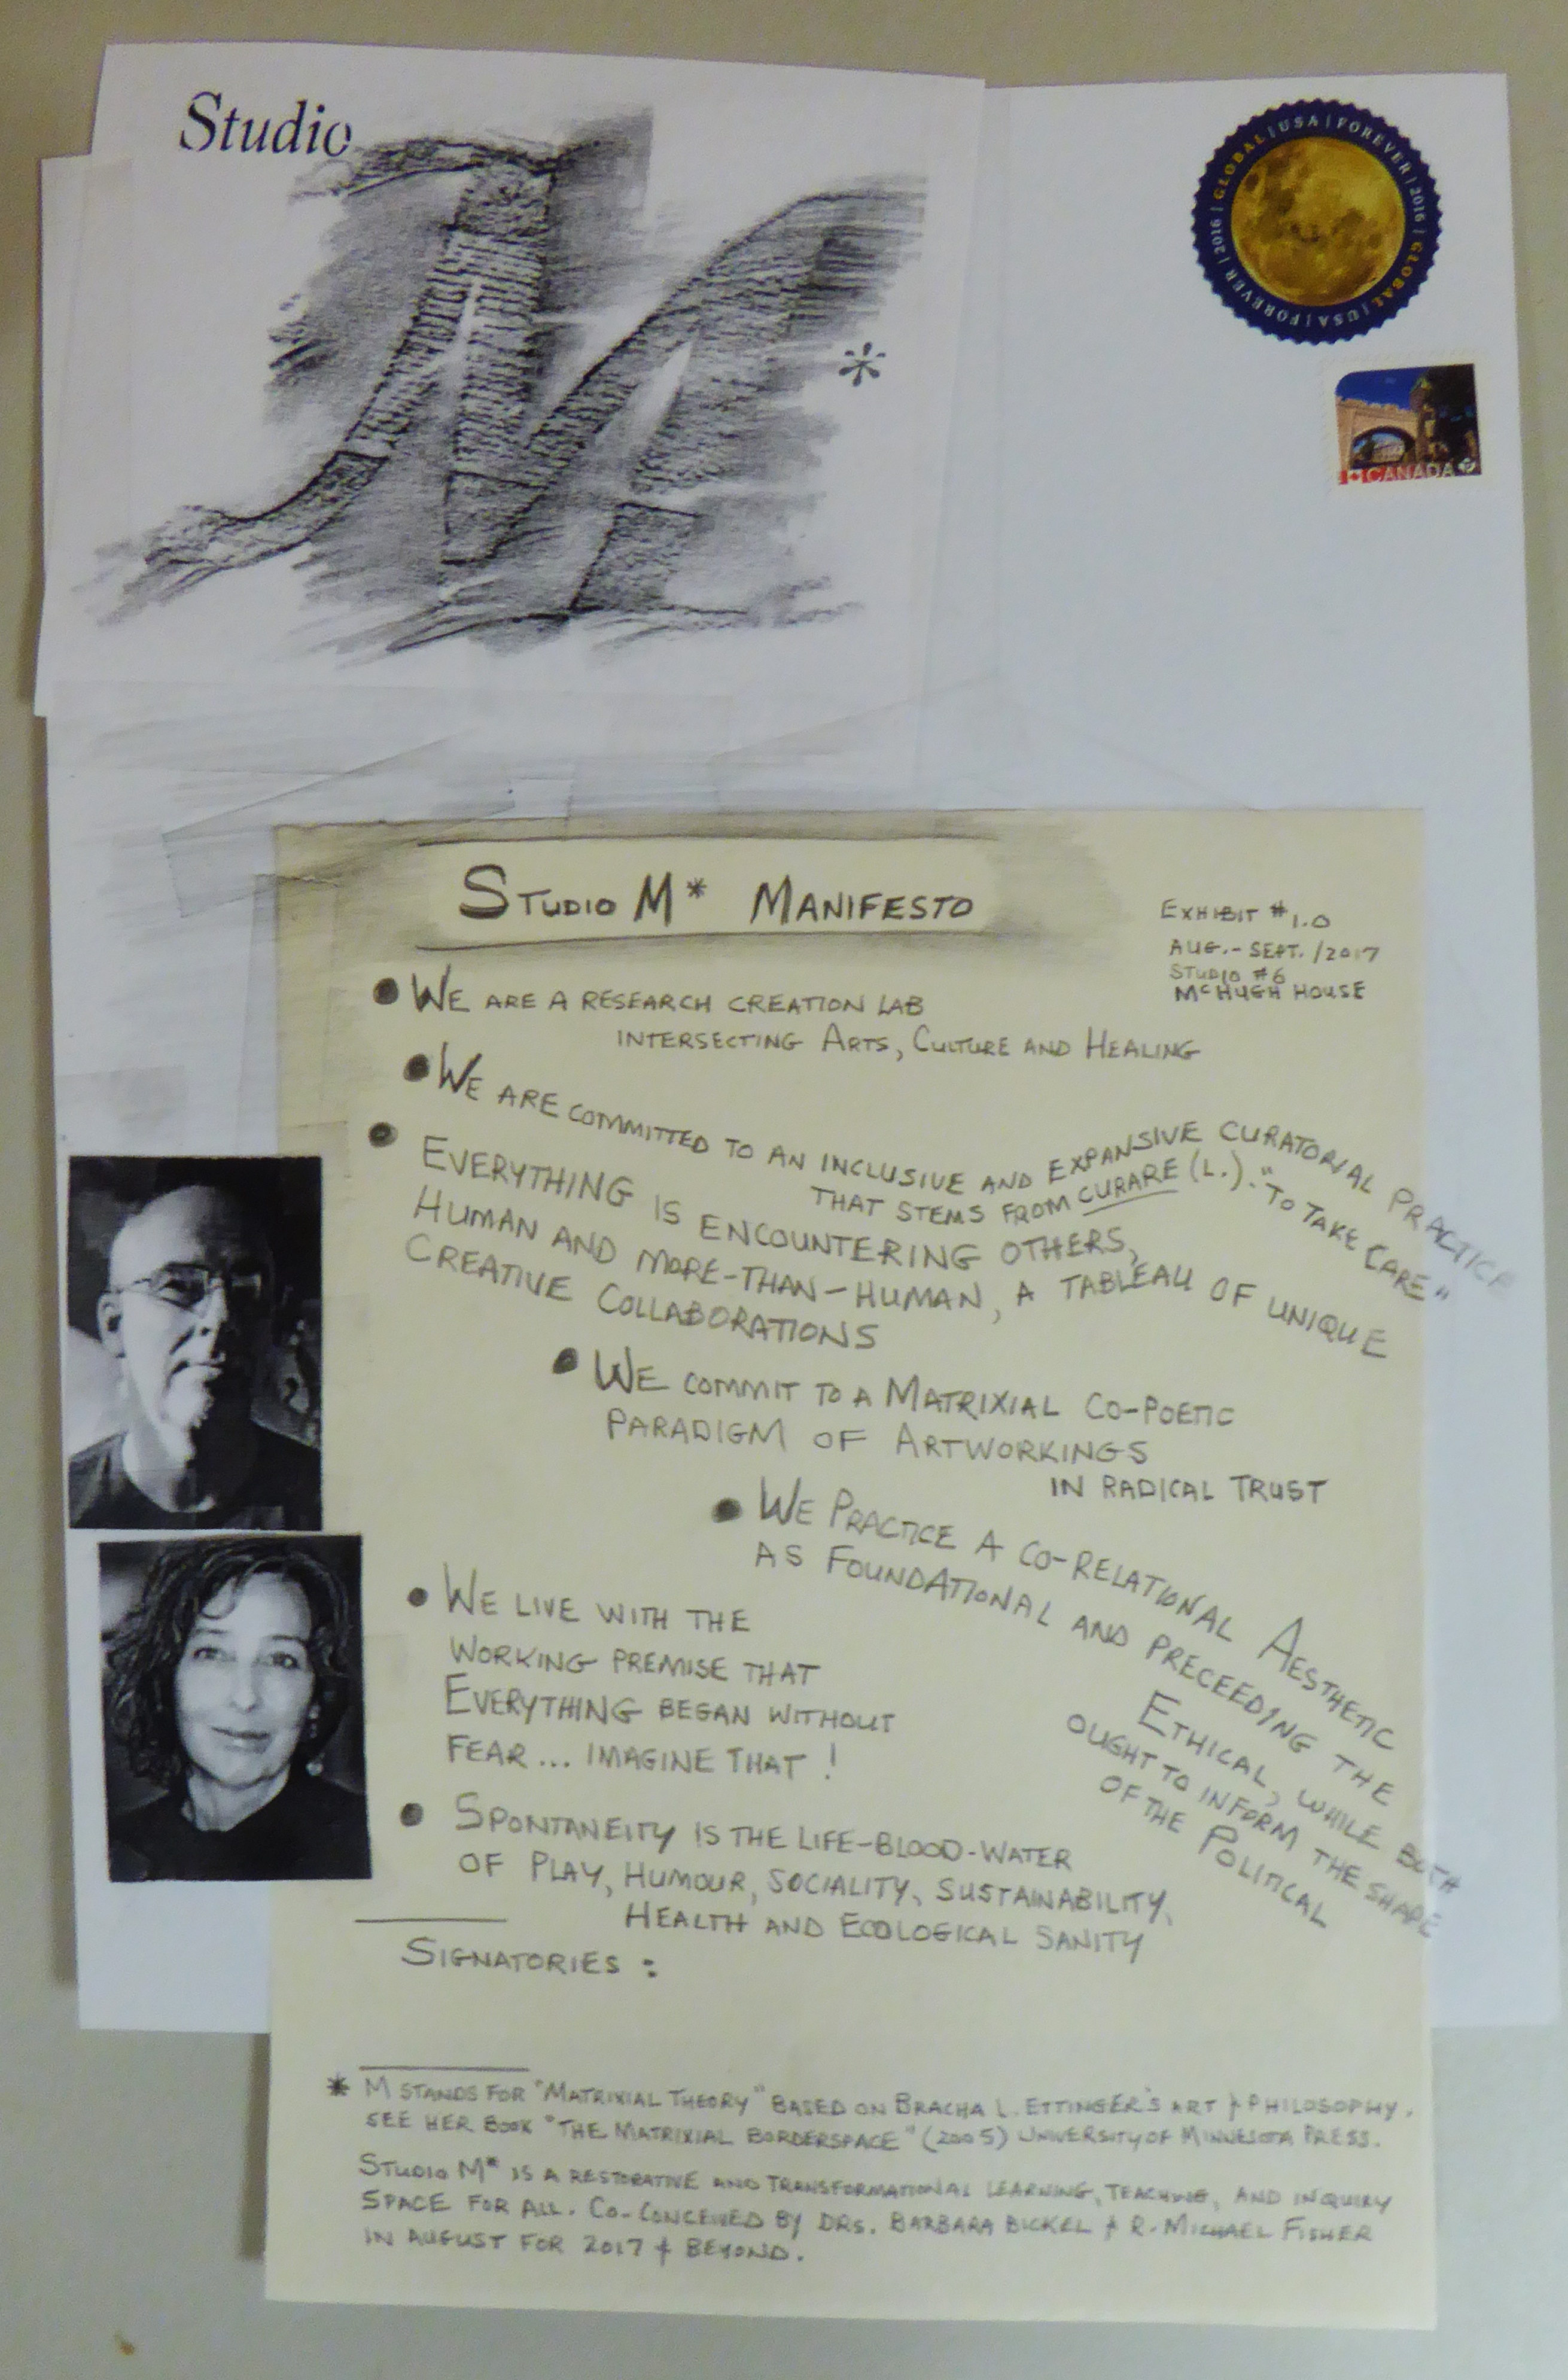 Studio
*
GLOBAL | USA | FOREVER | 2016 | GLOBAL | USA | FOREVER | 2016 |
CANADA P
STUDIO M* MANIFESTO
EXHIBIT #1.0
AUG.-SEPT./2017
STUDIO #6
McHUGH HOUSE
• WE ARE A RESEARCH CREATION LAB
INTERSECTING ARTS, CULTURE AND HEALING
• WE ARE COMMITTED TO AN INCLUSIVE AND EXPANSIVE CURATORIAL PRACTICE
THAT STEMS FROM CURARE (L.). "TO TAKE CARE"
• EVERYTHING IS ENCOUNTERING OTHERS,
HUMAN AND MORE-THAN-HUMAN, A TABLEAU OF UNIQUE
CREATIVE COLLABORATIONS
• WE COMMIT TO A MATRIXIAL CO-POETIC
PARADIGM OF ARTWORKINGS
IN RADICAL TRUST
• WE PRACTICE A CO-RELATIONAL AESTHETIC
AS FOUNDATIONAL AND PRECEEDING THE
ETHICAL, WHILE BOTH
OUGHT TO INFORM THE SHAPE
OF THE POLITICAL
• WE LIVE WITH THE
WORKING PREMISE THAT
EVERYTHING BEGAN WITHOUT
FEAR... IMAGINE THAT!
• SPONTANEITY IS THE LIFE-BLOOD-WATER
OF PLAY, HUMOUR, SOCIALITY, SUSTAINABILITY,
HEALTH AND ECOLOGICAL SANITY
SIGNATORIES:
* M STANDS FOR "MATRIXIAL THEORY" BASED ON BRACHA L. ETTINGER'S ART & PHILOSOPHY.
SEE HER BOOK "THE MATRIXIAL BORDERSPACE" (2005) UNIVERSITY OF MINNESOTA PRESS.
STUDIO M* IS A RESTORATIVE AND TRANSFORMATIONAL LEARNING, TEACHING, AND INQUIRY
SPACE FOR ALL. CO-CONCEIVED BY DRS. BARBARA BICKEL & R. MICHAEL FISHER
IN AUGUST FOR 2017 & BEYOND.